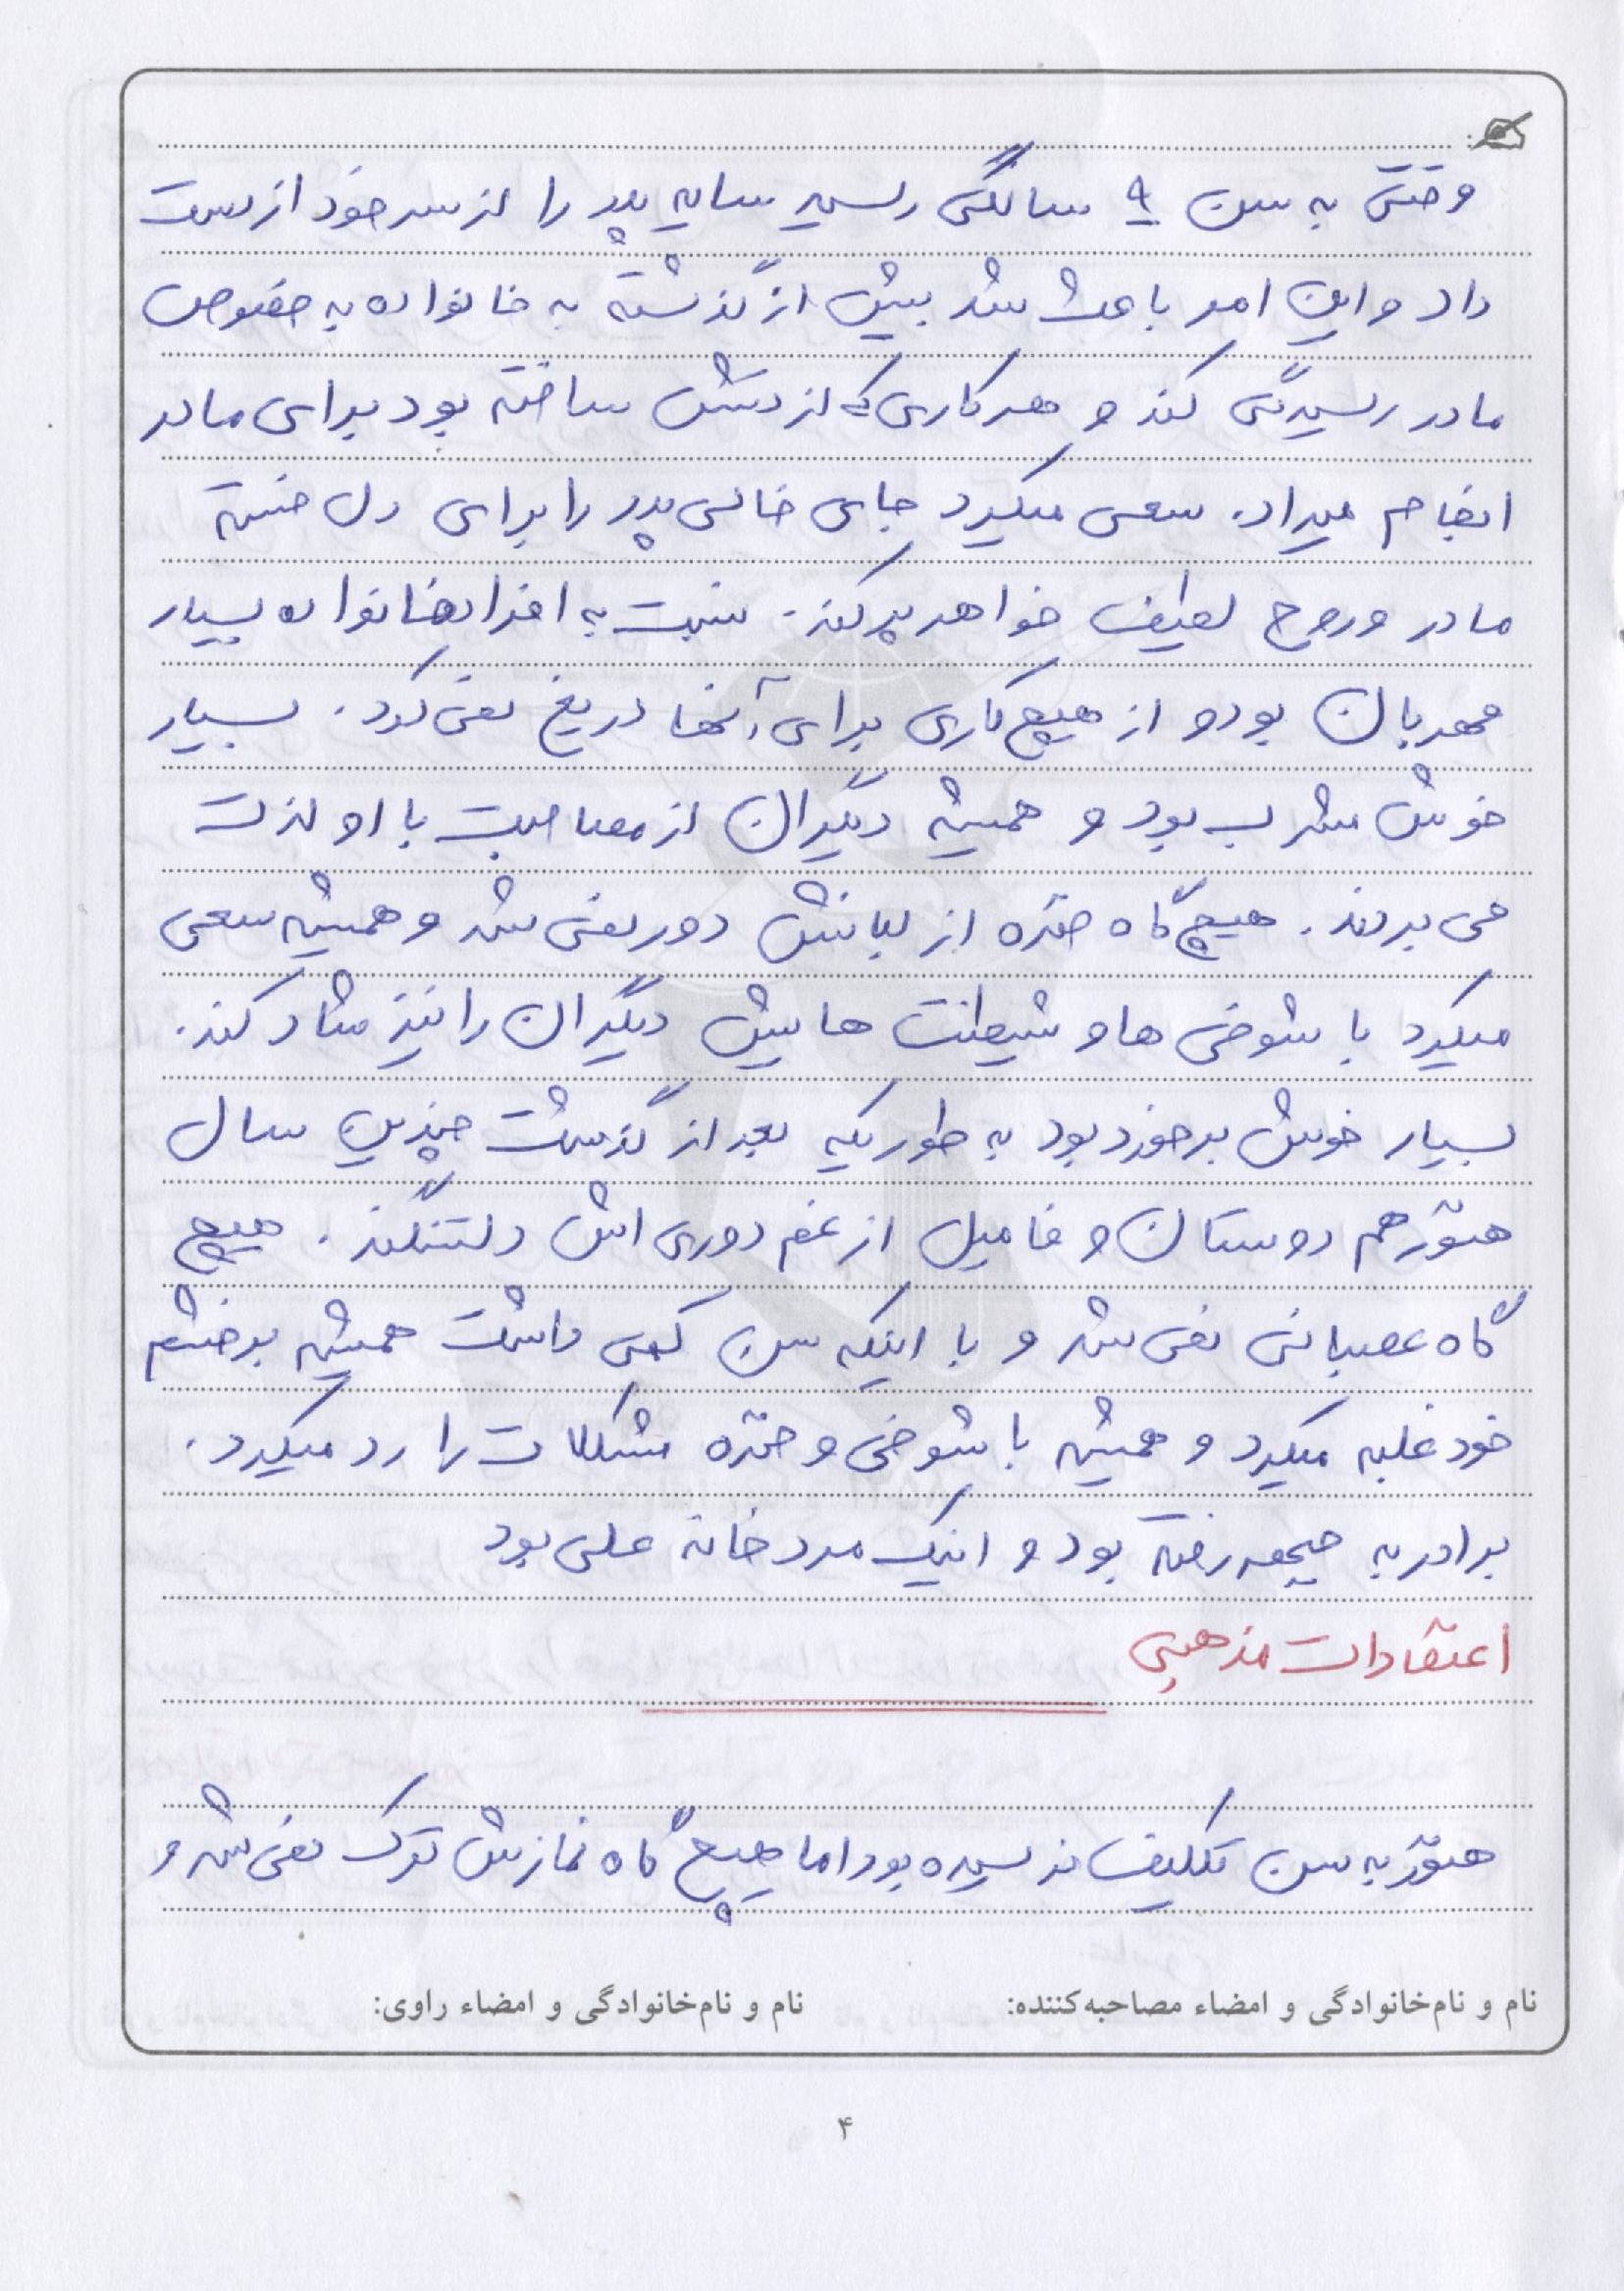 وقتی به سن ۹ سالگی رسید سایه پدر را از سر خود از دست
داد و این امر باعث شد بیش از گذشته به خانواده به خصوص
مادر رسیدگی کند و هر کاری که از دستش ساخته بود برای مادر
انجام میداد. سعی میکرد جای خالی پدر را برای دل خسته
مادر و روح لطیف خواهر پر کند. نسبت به افراد خانواده بسیار
مهربان بود و از هیچ کاری برای آنها دریغ نمی کرد. بسیار
خوش مشرب بود و همیشه دیگران از مصاحبت با او لذت
می بردند. هیچ گاه خنده از لبانش دور نمی شد و همیشه سعی
میکرد با شوخی ها و شیطنت هایش دیگران را نیز شاد کند.
بسیار خوش برخورد بود به طوریکه بعد از گذشت چندین سال
هنوز هم دوستان و فامیل از غم دوری اش دلتنگند. هیچ
گاه عصبانی نمی شد و با اینکه سن کمی داشت همیشه بر خشم
خود غلبه میکرد و همیشه با شوخی و خنده مشکلات را رد میکرد.
برادر به جبهه رفته بود و اینک مرد خانه علی بود
اعتقادات مذهبی
هنوز به سن تکلیف نرسیده بود اما هیچ گاه نمازش ترک نمی شد و
نام و نام‌خانوادگی و امضاء مصاحبه‌کننده: نام و نام‌خانوادگی و امضاء راوی:
۴